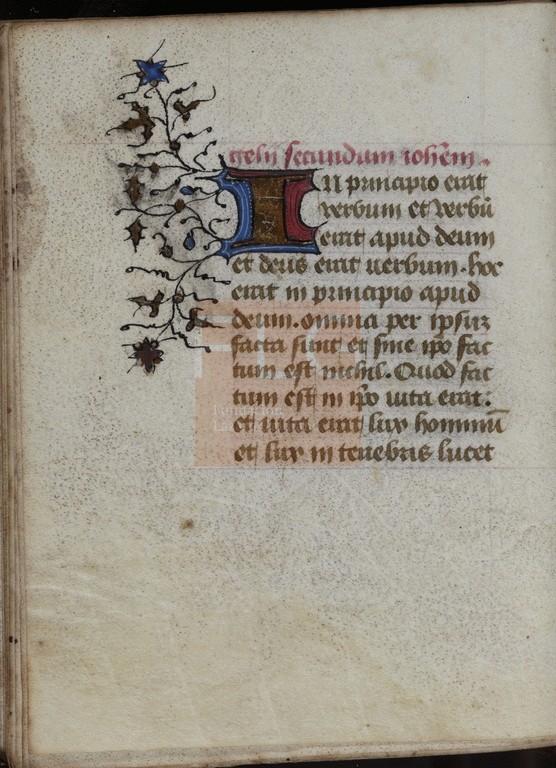 gelij secundum ioh̃em.
In principio erat
verbum et verbũ
erat apud deum
et deus erat uerbum. hoc
erat in principio apud
deum. omnia per ipsuz
facta sunt et sine ip̃o fac
tum est nichil. Quod fac
tum est in ip̃o uita erat:
et uita erat lux hominũ
et lux in tenebris lucet